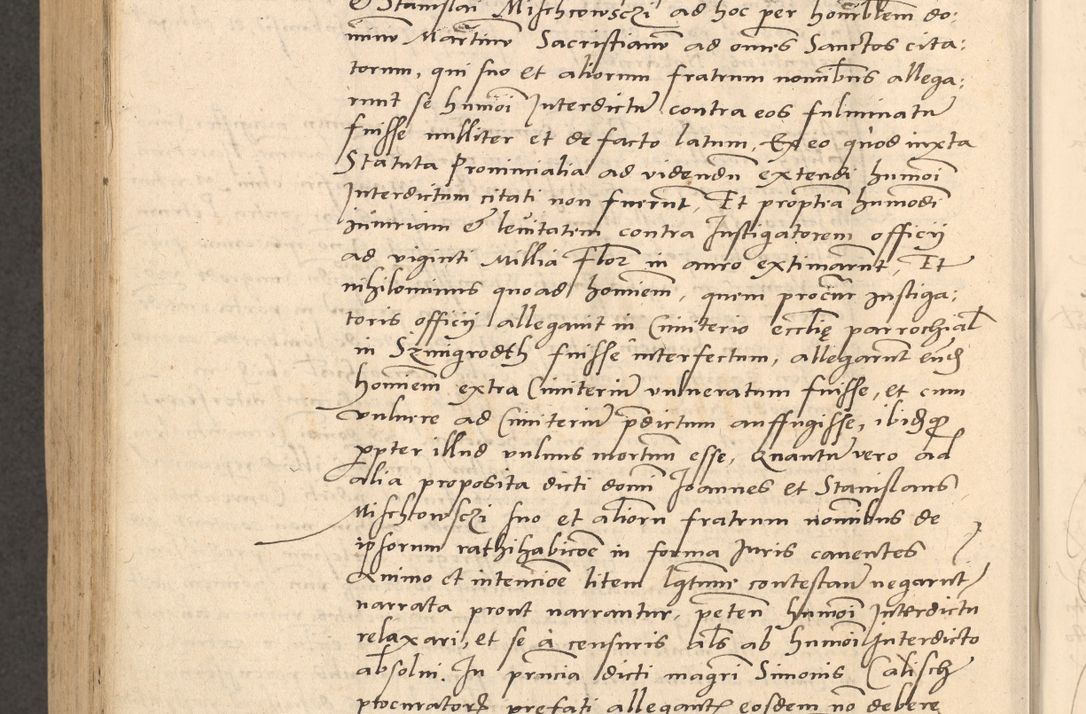 & Stanislai Mischcowsczi ad hoc per honĩblem do:
minũ Martinũ Sacristianũ ad omēs Sanctos cita:
torum, qui suo et aliorum fratrum nominibus allega:
runt se hmõi Interdictũ contra eos fulminatũ
fuisse nulliter et de facto latum, Ex eo quod iuxta
Statuta Provincialia ad videndũ extendi hmõi
Interdictum citati non fuerunt, Et proptrea humõdi
iniuriam & levitatem contra Instigatorem officij
ad viginti Millia Flor in auro extimarunt, Et
nihilominus quoad hominem, quem procur instiga:
toris officij allegavit in Cimiterio ecclię parrochial
in Szmigrodth fuisse interfectum, allegarunt eund
hominem extra Cimiteriũ vulneratum fuisse, et cum
vulnere ad Cimiteriũ pdictum auffugisse, ibidq
ppter illud vulnus mortuũ esse, Quantũ vero ad
alia proposita dicti domi Ioannes et Stanislaus
Mischkowsczi suo et aliorũ fratrum nominibus de
ipsorum rathihabicõe in forma Iuris caventes
animo et intencõe litem lgtime contestan negarunt
narrata prout narrantur, peten hmõi Interdictũ
relaxari, et se à censuris als ab hmõi Interdicto
absolvi. In pñcia dicti magri Simonis Calisch
procuratoris prefati allegantis eosdem nõ debere